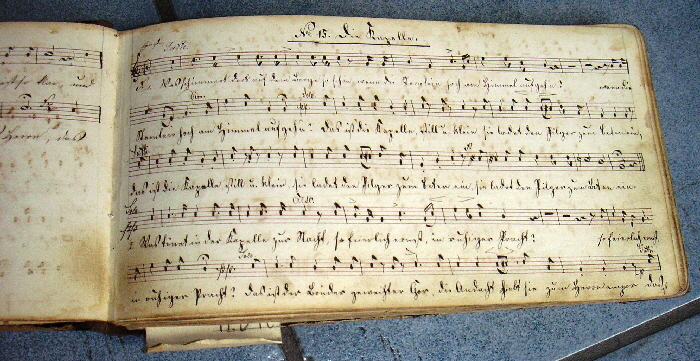 No 15. Die Kapelle.
Solo.
Was schimmert dort auf dem Berge so schön, wenn die Sternlein hoch am Himmel aufgehn? wenn die
Solo
Sternlein hoch am Himmel aufgehn? Das ist die Kapelle, still u. klein, sie ladet den Pilger zum Beten ein,
das ist die Kapelle still u. klein, sie ladet den Pilger zum Beten ein, sie ladet den Pilger zum Beten ein
Solo.
Was tönet in der Kapelle zur Nacht, so feierlich ernst, in ruhiger Pracht? so feierlich ernst,
in ruhiger Pracht? Das ist der Brüder geweihter Chor, die Andacht hebt sie zum Herrn empor das
Herrn, das